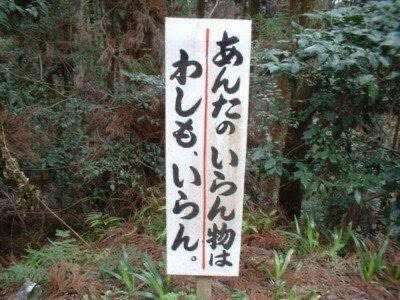 あんたの いらん物は
わしも、いらん。